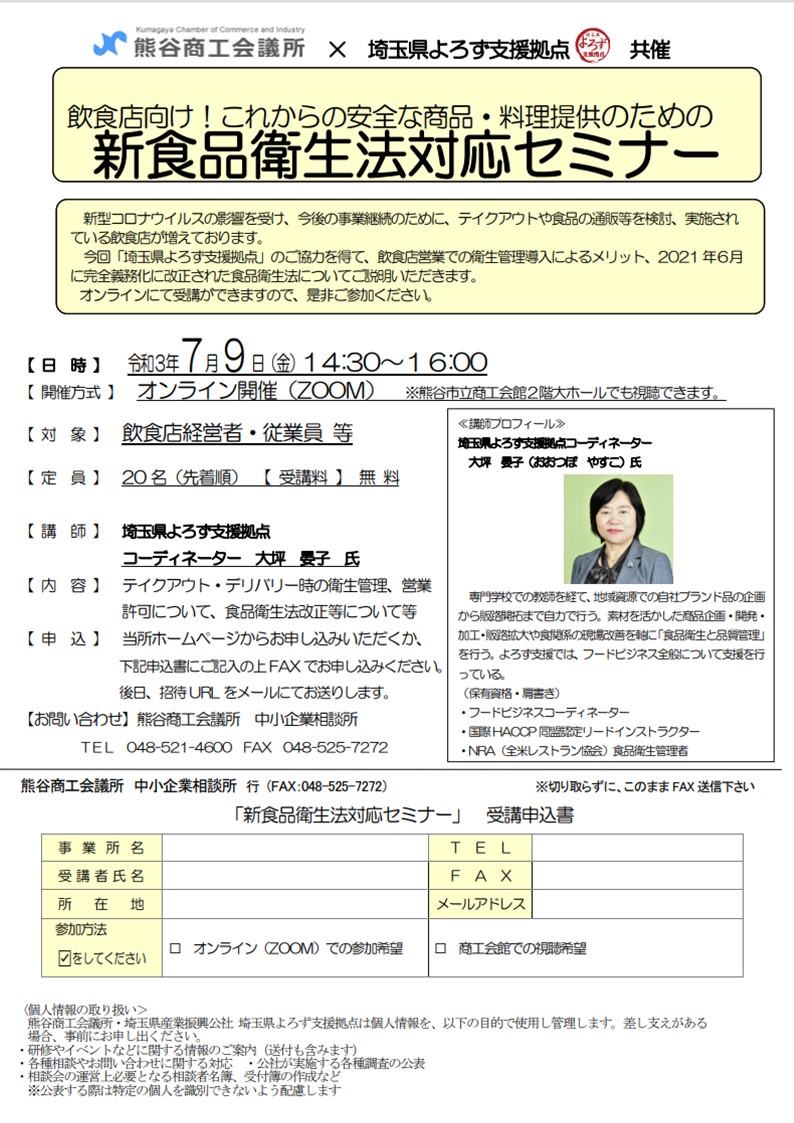 Kumagaya Chamber of Commerce and Industry
熊谷商工会議所 × 埼玉県よろず支援拠点 よろず 支援拠点 共催
飲食店向け！これからの安全な商品・料理提供のための
新食品衛生法対応セミナー
新型コロナウイルスの影響を受け、今後の事業継続のために、テイクアウトや食品の通販等を検討、実施され
ている飲食店が増えております。
今回「埼玉県よろず支援拠点」のご協力を得て、飲食店営業での衛生管理導入によるメリット、2021年6月
に完全義務化に改正された食品衛生法についてご説明いただきます。
オンラインにて受講ができますので、是非ご参加ください。
【日 時】 令和3年7月9日(金)14:30～16:00
【開催方式】 オンライン開催（ZOOM） ※熊谷市立商工会館2階大ホールでも視聴できます。
【対 象】 飲食店経営者・従業員 等
【定 員】 20名（先着順） 【受講料】 無料
【講 師】 埼玉県よろず支援拠点
コーディネーター 大坪 晏子 氏
【内 容】 テイクアウト・デリバリー時の衛生管理、営業
許可について、食品衛生法改正等について等
【申 込】 当所ホームページからお申し込みいただくか、
下記申込書にご記入の上FAXでお申し込みください。
後日、招待URLをメールにてお送りします。
【お問い合わせ】熊谷商工会議所 中小企業相談所
TEL 048-521-4600 FAX 048-525-7272
≪講師プロフィール≫
埼玉県よろず支援拠点コーディネーター
大坪 晏子（おおつぼ やすこ）氏
専門学校での教師を経て、地域資源での自社ブランド品の企画
から販路開拓まで自力で行う。素材を活かした商品企画・開発・
加工・販路拡大や食関係の現場改善を軸に「食品衛生と品質管理」
を行う。よろず支援では、フードビジネス全般について支援を行
っている。
（保有資格・肩書き）
・フードビジネスコーディネーター
・国際HACCP同盟認定リードインストラクター
・NRA（全米レストラン協会）食品衛生管理者
熊谷商工会議所 中小企業相談所 行（FAX:048-525-7272） ※切り取らずに、このままFAX送信下さい
「新食品衛生法対応セミナー」 受講申込書
事業所名 TEL
受講者氏名 FAX
所在地 メールアドレス
参加方法
☑をしてください □ オンライン（ZOOM）での参加希望 □ 商工会館での視聴希望
〈個人情報の取り扱い＞
熊谷商工会議所・埼玉県産業振興公社 埼玉県よろず支援拠点は個人情報を、以下の目的で使用し管理します。差し支えがある
場合、事前にお申し出ください。
・研修やイベントなどに関する情報のご案内（送付も含みます）
・各種相談やお問い合わせに関する対応 ・公社が実施する各種調査の公表
・相談会の運営上必要となる相談者名簿、受付簿の作成など
※公表する際は特定の個人を識別できないよう配慮します